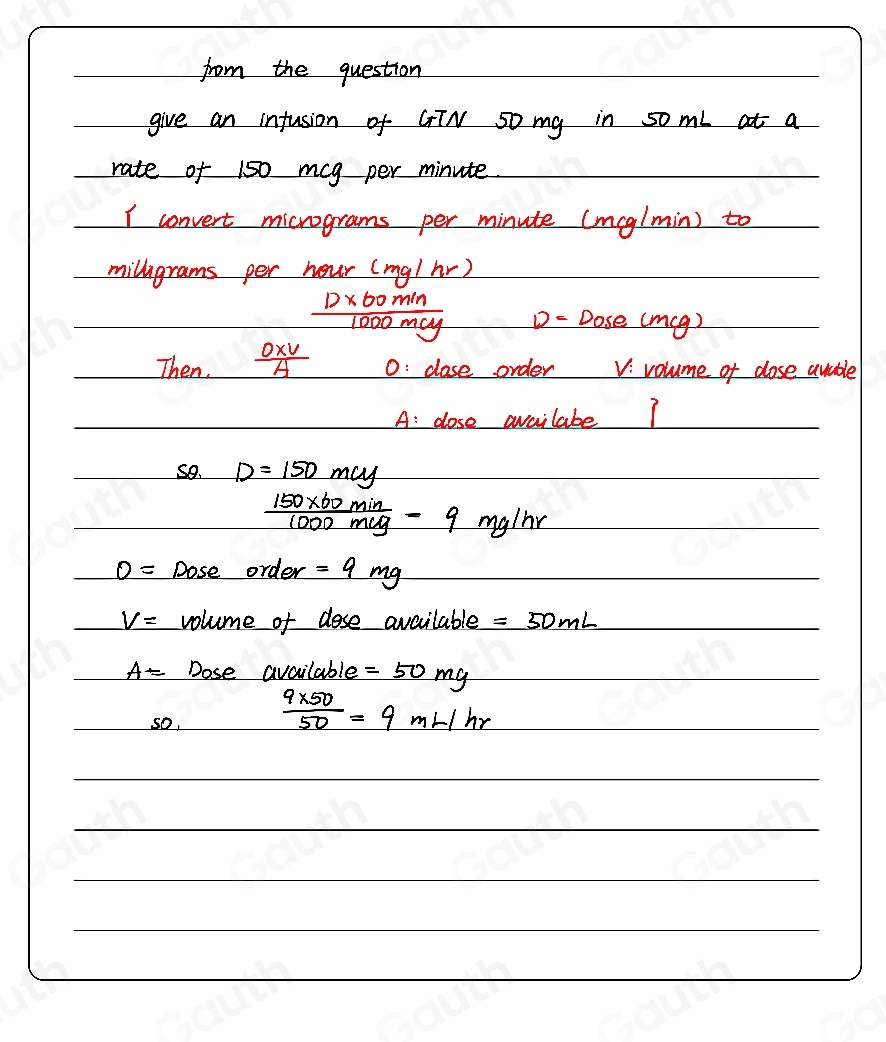 from the question
give an infusion of GTN 50 mg in 50 mL at a
rate of 150 mcg per minute.
[ convert micrograms per minute (mcg/min) to
milligrams per hour (mg/hr)
D×60 min / 1000 mcg D = Dose (mcg)
Then, O×V / A O: dose order V: volume of dose
A: dose availabe ]
so, D = 150 mcg
150×60 min / 1000 mcg = 9 mg/hr
O = Dose order = 9 mg
V = volume of dose available = 50mL
A = Dose available = 50 mg
so, 9×50 / 50 = 9 mL/hr
Gauth